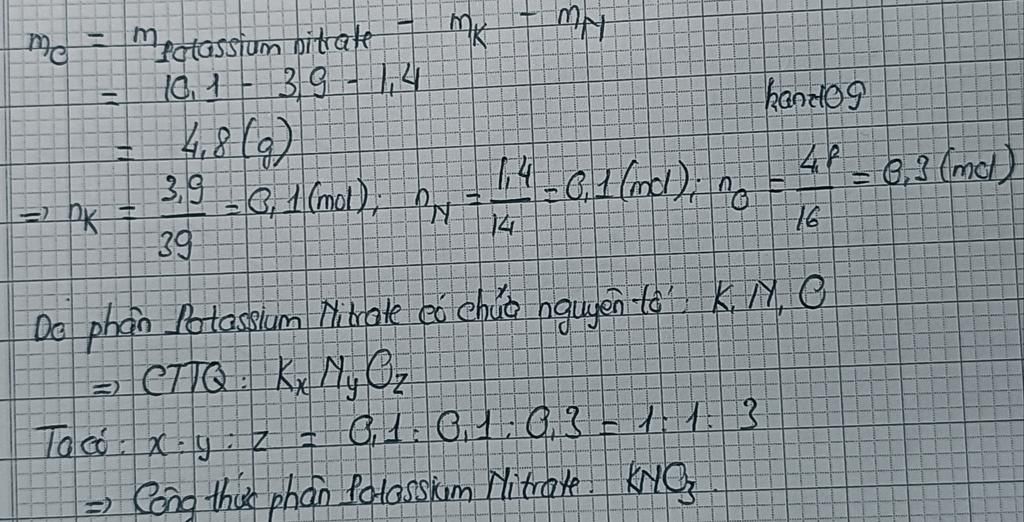 mO = mPotassium nitrate - mK - mN
= 10,1 - 3,9 - 1,4
handog
= 4,8 (g)
=> nK = 3,9/39 = 0,1 (mol); nN = 1,4/14 = 0,1 (mol); nO = 4,8/16 = 0,3 (mol)
Do phân Potassium Nitrate có chứa nguyên tố: K, N, O
=> CTTQ: KxNyOz
Ta có: x : y : z = 0,1 : 0,1 : 0,3 = 1 : 1 : 3
=> Công thức phân Potassium Nitrate: KNO3